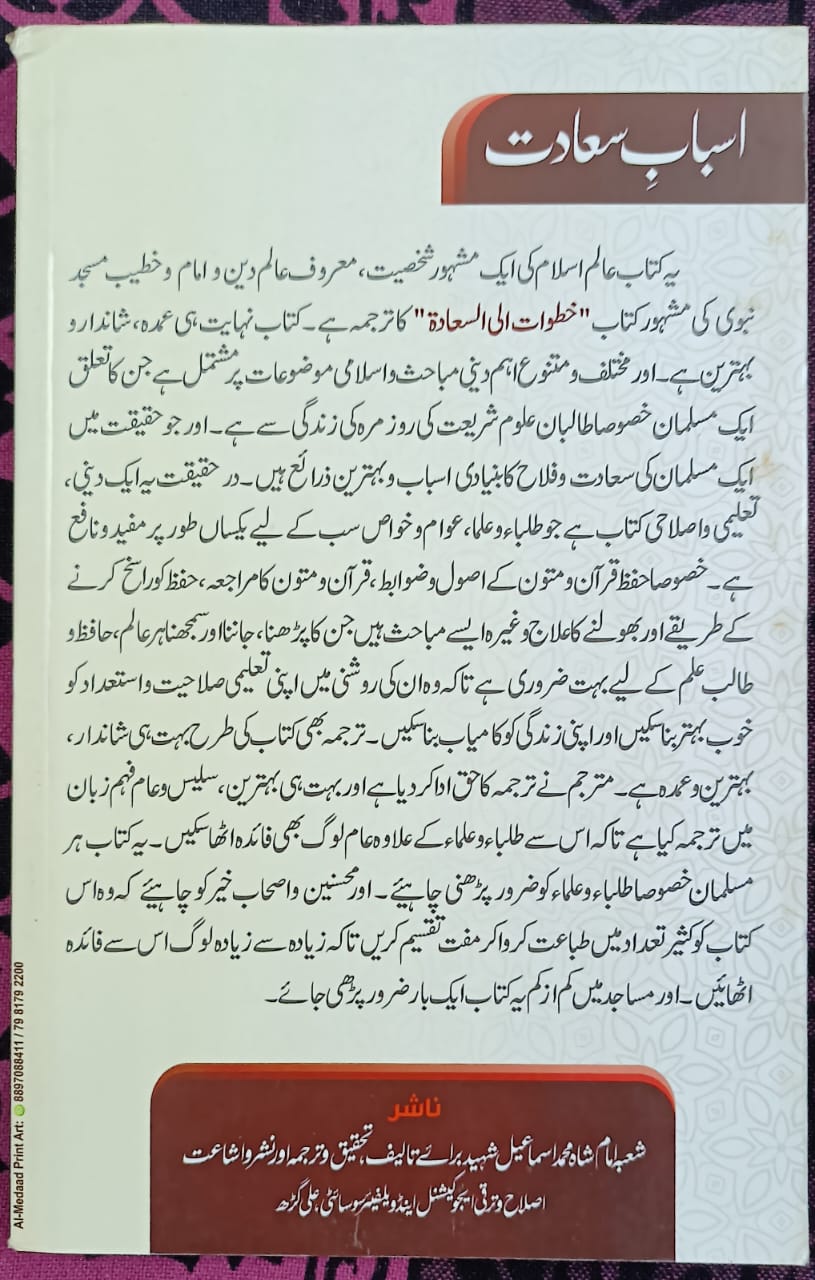 اسبابِ سعادت
یہ کتاب عالم اسلام کی ایک مشہور شخصیت، معروف عالم دین و امام و خطیب مسجد
نبوی کی مشہور کتاب "خطوات الی السعادۃ" کا ترجمہ ہے۔ کتاب نہایت ہی عمدہ، شاندار و
بہترین ہے۔ اور مختلف و متنوع اہم دینی مباحث و اسلامی موضوعات پر مشتمل ہے جن کا تعلق
ایک مسلمان خصوصا طالبان علوم شریعت کی روز مرہ کی زندگی سے ہے۔ اور جو حقیقت میں
ایک مسلمان کی سعادت و فلاح کا بنیادی اسباب و بہترین ذرائع ہیں۔ در حقیقت یہ ایک دینی،
تعلیمی و اصلاحی کتاب ہے جو طلباء و علما، عوام و خواص سب کے لیے یکساں طور پر مفید و نافع
ہے۔ خصوصا حفظ قرآن و متون کے اصول و ضوابط، قرآن و متون کا مراجعہ، حفظ کو راسخ کرنے
کے طریقے اور بھولنے کا علاج وغیرہ ایسے مباحث ہیں جن کا پڑھنا، جاننا اور سمجھنا ہر عالم، حافظ و
طالب علم کے لیے بہت ضروری ہے تاکہ وہ ان کی روشنی میں اپنی تعلیمی صلاحیت و استعداد کو
خوب بہتر بنا سکیں اور اپنی زندگی کو کامیاب بنا سکیں۔ ترجمہ بھی کتاب کی طرح بہت ہی شاندار،
بہترین و عمدہ ہے۔ مترجم نے ترجمہ کا حق ادا کر دیا ہے اور بہت ہی بہترین، سلیس و عام فہم زبان
میں ترجمہ کیا ہے تاکہ اس سے طلباء و علماء کے علاوہ عام لوگ بھی فائدہ اٹھا سکیں۔ یہ کتاب ہر
مسلمان خصوصا طلباء و علماء کو ضرور پڑھنی چاہیئے۔ اور محسنین و اصحاب خیر کو چاہیئے کہ وہ اس
کتاب کو کثیر تعداد میں طباعت کروا کر مفت تقسیم کریں تاکہ زیادہ سے زیادہ لوگ اس سے فائدہ
اٹھائیں۔ اور مساجد میں کم از کم یہ کتاب ایک بار ضرور پڑھی جائے۔
ناشر
شعبہ امام شاہ محمد اسماعیل شہید برائے تالیف، تحقیق و ترجمہ اور نشر و اشاعت
اصلاح و ترقی ایجوکیشنل اینڈ ویلفیئر سوسائٹی، علی گڑھ
Al-Medaad Print Art: 8897088411 / 79 8179 2200